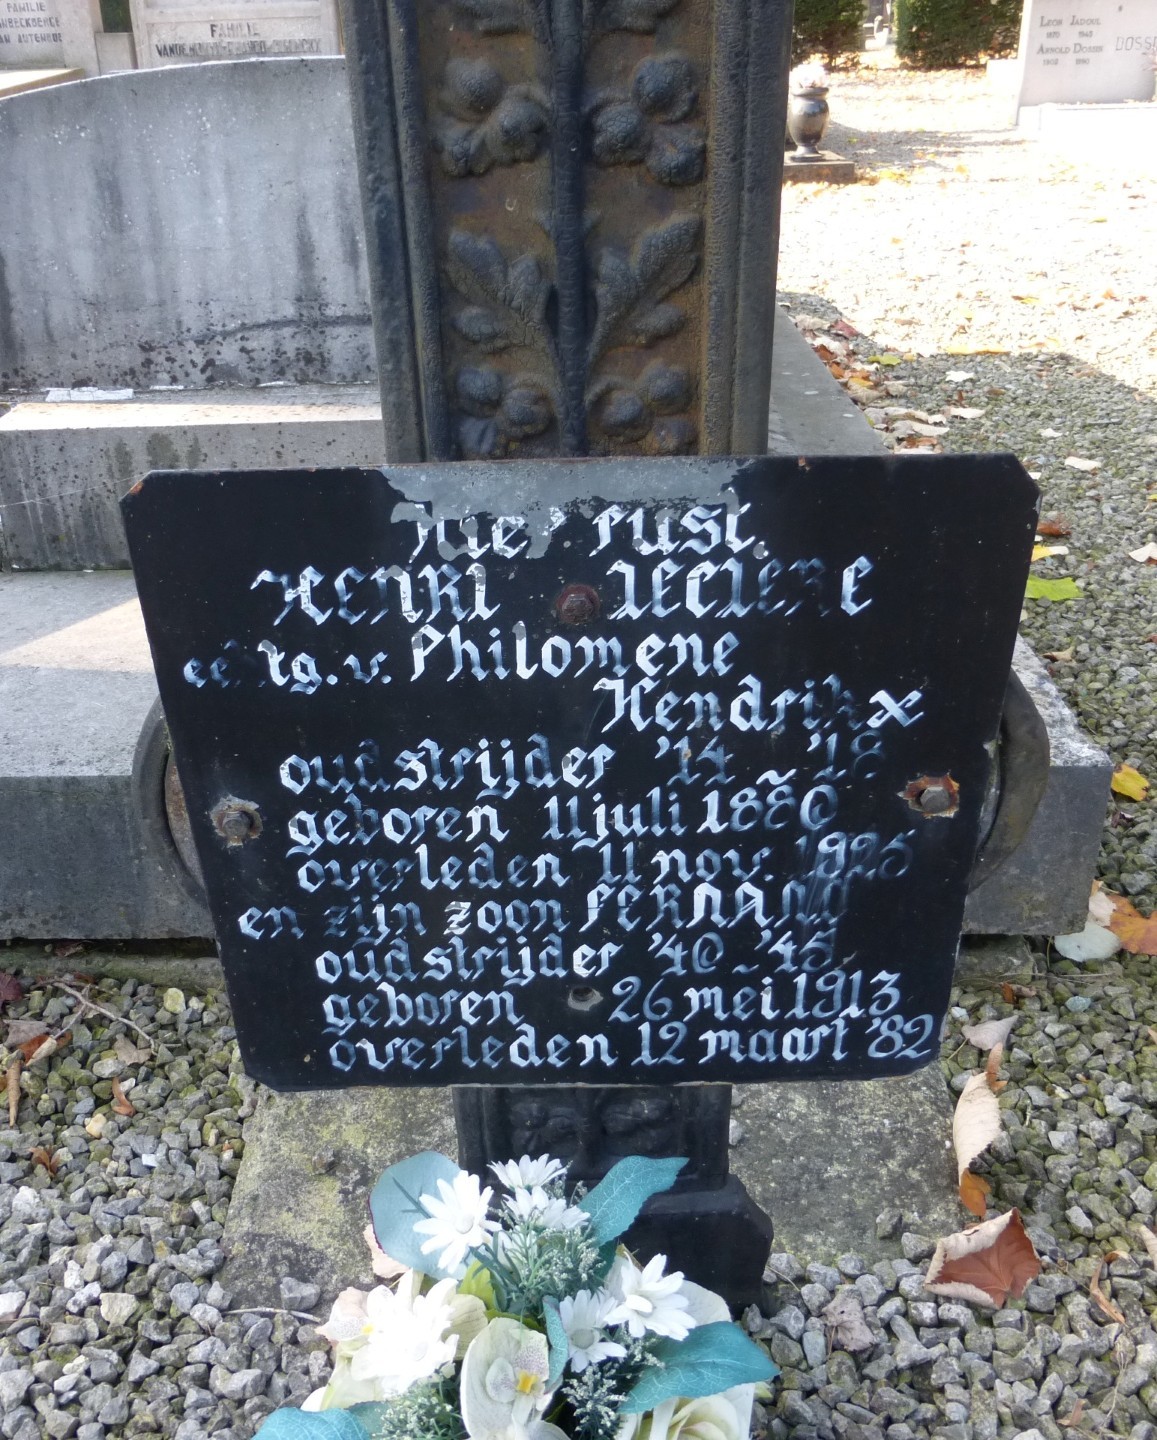 FAMILIE
FAMILIE
LEON JADOUL
1870 1945
ARNOLD DOSSIN
1902 1980
DOSS
Hier rust.
HENRI LECLERE
echtg. v. Philomene
Hendrikx
oudstrijder '14 - '18
geboren 11 juli 1880
overleden 11 nov. 1925
en zijn zoon FERNAND
oudstrijder '40 - '45
geboren 26 mei 1913
overleden 12 maart '82